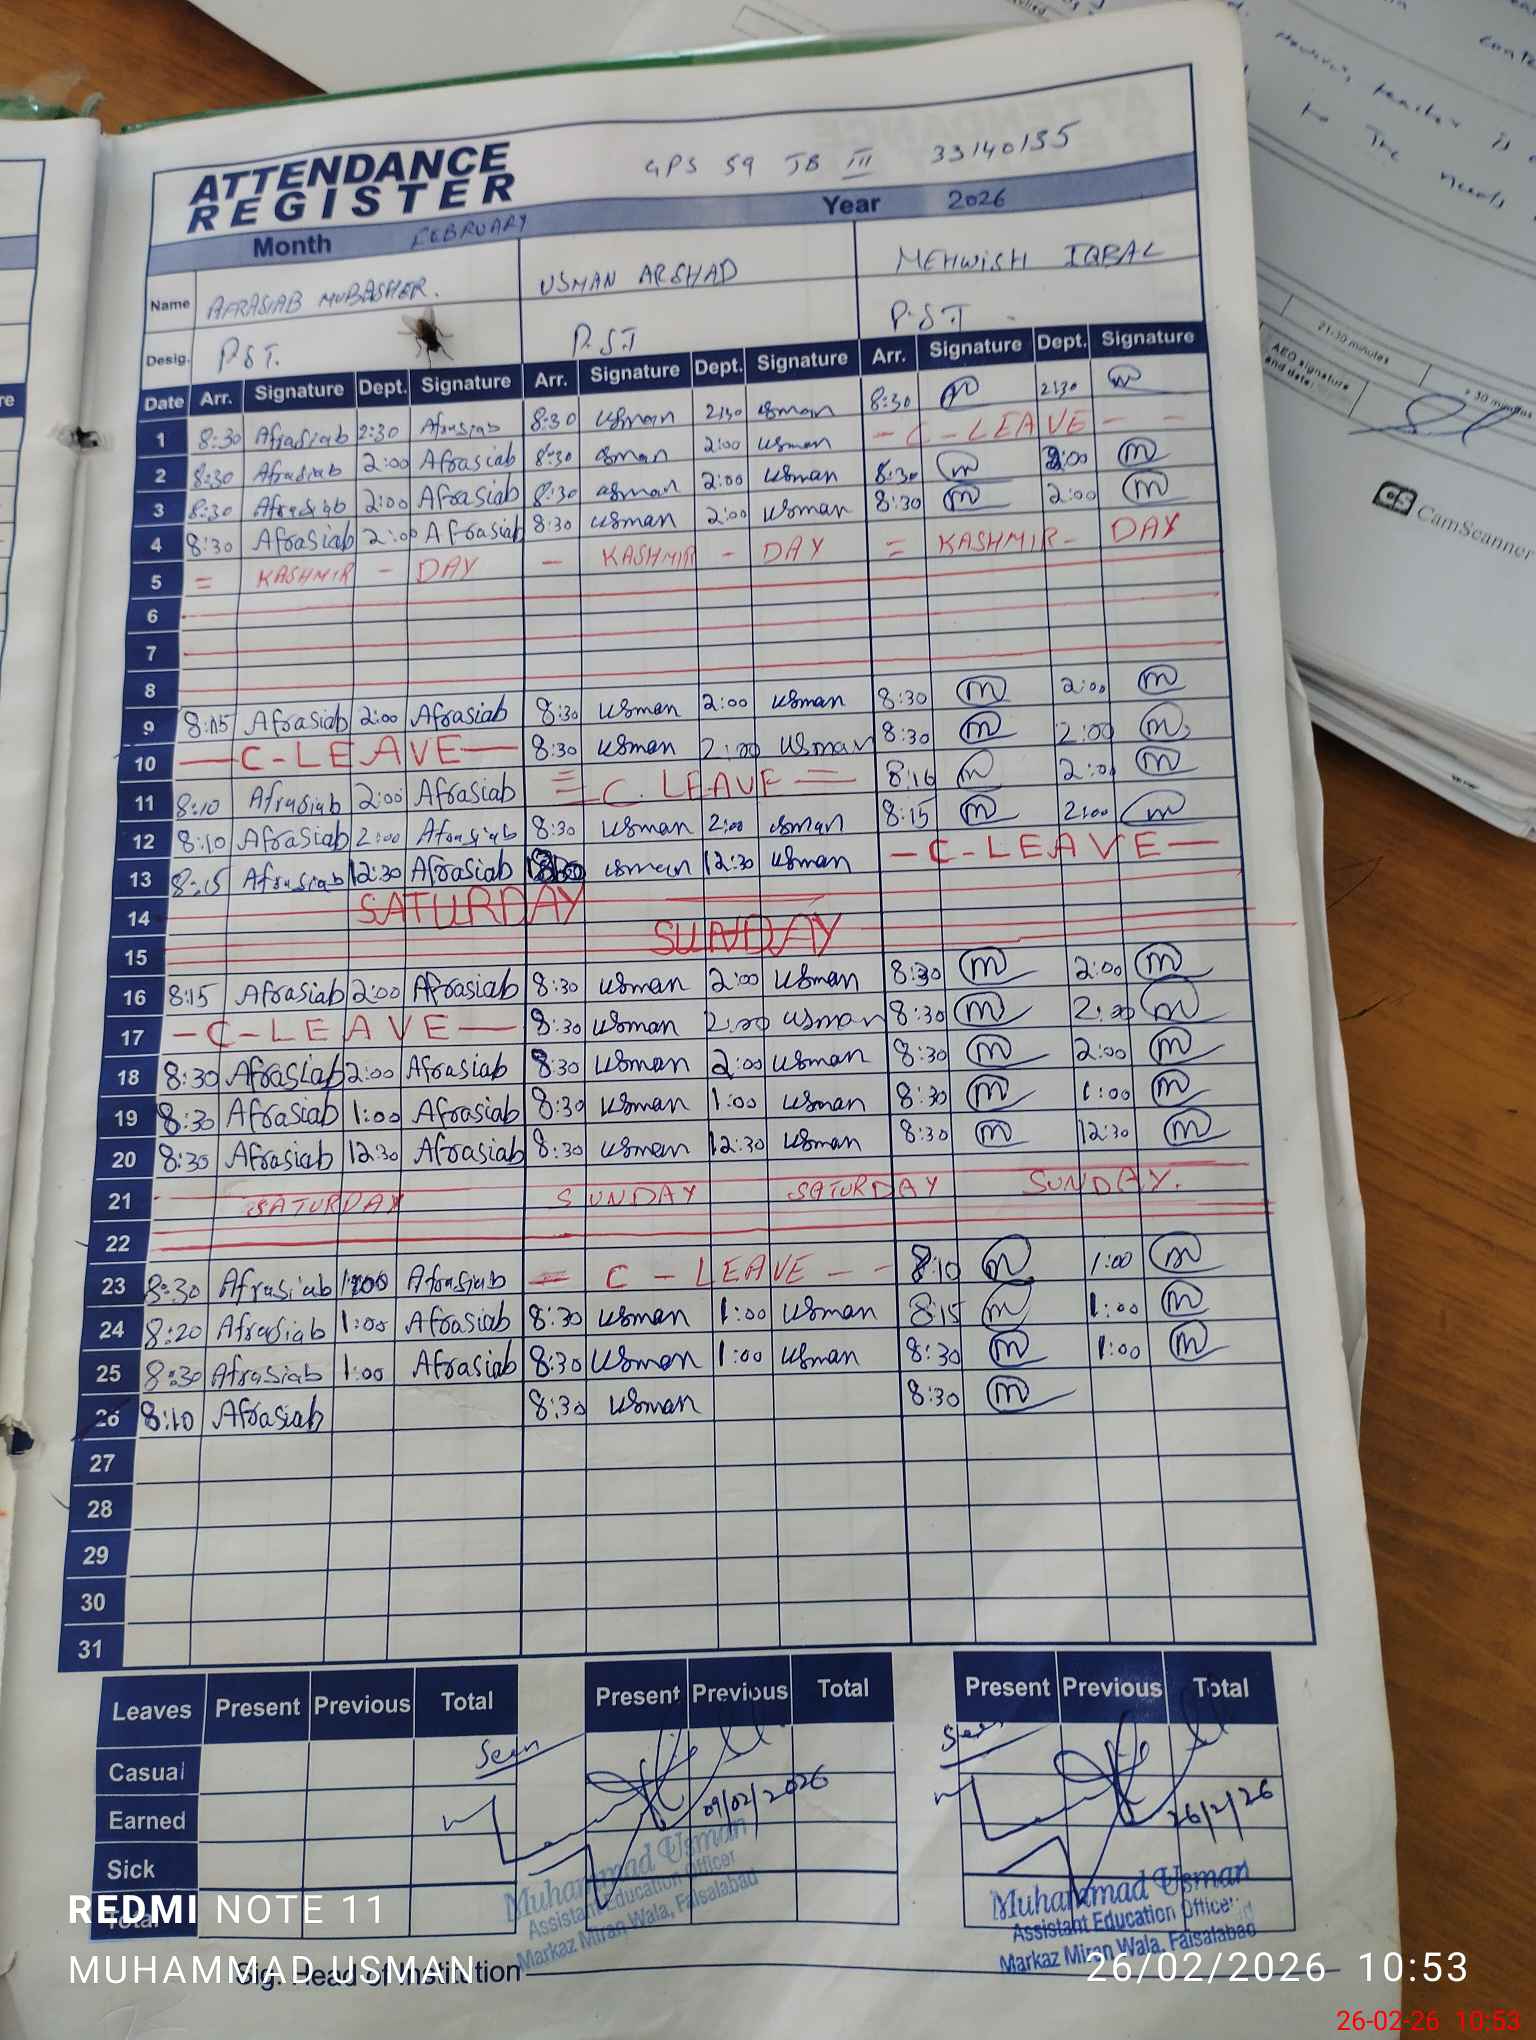 ATTENDANCE
REGISTER
GPS 59 JB III 33140135
Month FEBRUARY Year 2026
Name AFRASIAB MUBASHER. USMAN ARSHAD MEHWISH IQBAL
Desig. P.S.T. P.S.T P.S.T
Date Arr. Signature Dept. Signature Arr. Signature Dept. Signature Arr. Signature Dept. Signature
1 8:30 Afrasiab 2:30 Afrasiab 8:30 usman 2:30 usman 8:30 m 2:30 m
2 8:30 Afrasiab 2:00 Afrasiab 8:30 usman 2:00 usman - C - LEAVE - -
3 8:30 Afrasiab 2:00 Afrasiab 8:30 usman 2:00 usman 8:30 m 2:00 m
4 8:30 Afrasiab 2:00 Afrasiab 8:30 usman 2:00 usman 8:30 m 2:00 m
5 = KASHMIR - DAY - KASHMIR - DAY = KASHMIR - DAY
6
7
8
9 8:15 Afrasiab 2:00 Afrasiab 8:30 usman 2:00 usman 8:30 m 2:00 m
10 — C - LEAVE — 8:30 usman 2:00 usman 8:30 m 2:00 m
11 8:10 Afrasiab 2:00 Afrasiab = C. LEAVE = 8:16 m 2:00 m
12 8:10 Afrasiab 2:00 Afrasiab 8:30 usman 2:00 usman 8:15 m 2:00 m
13 8:15 Afrasiab 12:30 Afrasiab usman 12:30 usman - C - LEAVE —
14 SATURDAY
15 SUNDAY
16 8:15 Afrasiab 2:00 Afrasiab 8:30 usman 2:00 usman 8:30 m 2:00 m
17 - C - LEAVE — 8:30 usman 2:00 usman 8:30 m 2:00 m
18 8:30 Afrasiab 2:00 Afrasiab 8:30 usman 2:00 usman 8:30 m 2:00 m
19 8:30 Afrasiab 1:00 Afrasiab 8:30 usman 1:00 usman 8:30 m 1:00 m
20 8:30 Afrasiab 12:30 Afrasiab 8:30 usman 12:30 usman 8:30 m 12:30 m
21 SATURDAY SUNDAY SATURDAY SUNDAY.
22
23 8:30 Afrasiab 1:00 Afrasiab = C - LEAVE - - 8:10 m 1:00 m
24 8:20 Afrasiab 1:00 Afrasiab 8:30 usman 1:00 usman 8:15 m 1:00 m
25 8:30 Afrasiab 1:00 Afrasiab 8:30 usman 1:00 usman 8:30 m 1:00 m
26 8:10 Afrasiab 8:30 usman 8:30 m
27
28
29
30
31
Leaves Present Previous Total Present Previous Total Present Previous Total
Seen Seen
Casual
Earned 09/02/2026 26/2/26
Sick
Total
Muhammad Usman
Assistant Education Officer
Markaz Miran Wala, Faisalabad
Muhammad Usman
Assistant Education Officer
Markaz Miran Wala, Faisalabad
Sig. Head of Institution
REDMI NOTE 11
MUHAMMAD USMAN
26/02/2026 10:53
26-02-26 10:53
21-30 minutes
AEO signature
and date:
CS CamScanner
to The needs